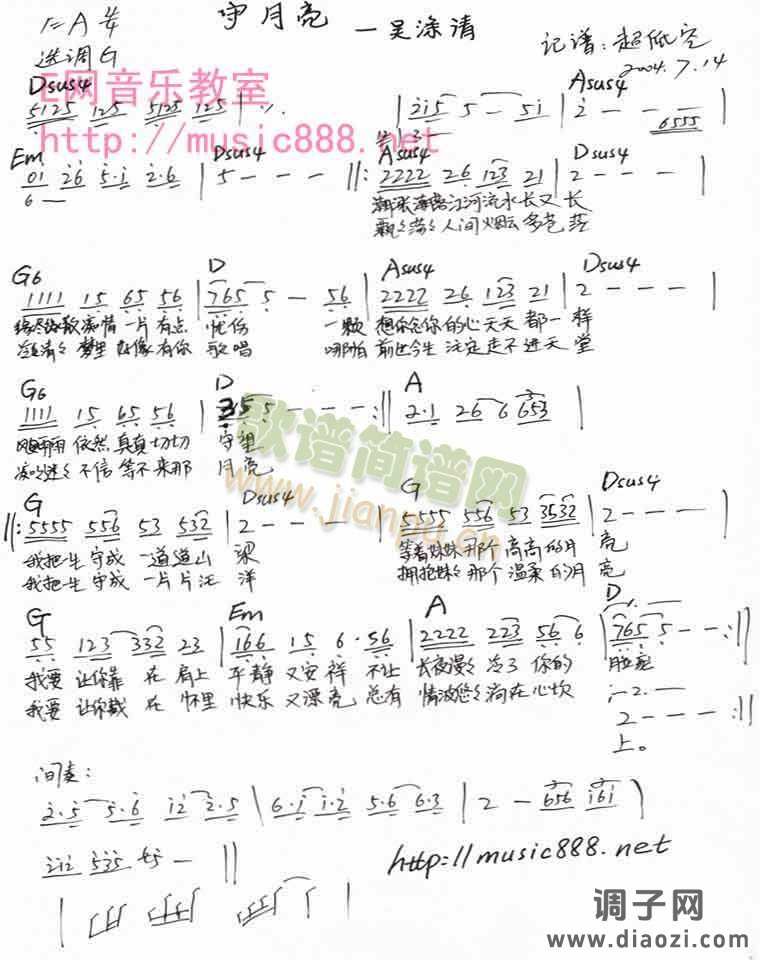 1=A 4/4 守月亮 —吴涤清
选调G 记谱:超低空
2004.7.14
E网音乐教室
http://music888.net
Dsus4 Asus4
5125 125 5125 125 | ٪ | 2i5 5 — 5i | 2 - - 6555 |
Em Dsus4 Asus4 Dsus4
01 26 5·1 2·6 | 5 - - - ||: 2222 26 123 21 | 2 - - - |
6 —
江河流水长又长
人间烟云多苍茫
G6 D Asus4 Dsus4
1111 15 65 56 | 765 5 — 56 | 2222 26 123 21 | 2 - - - |
一片有点 忧伤 一颗 想你念你的心天天都一样
梦里好像有你 歌唱 哪怕 前世今生 注定走不进天堂
G6 D A
1111 15 65 56 | 355 - - - :|| 2·1 26 6 653 |
依然真真切切 守望
不信等不来那 月亮
歌谱简谱网
www.jianpu.cn
G Dsus4 G Dsus4
||: 5555 556 53 532 | 2 - - - | 5555 556 53 3532 | 2 - - - |
我把一生守成一道道山 梁 等着妹妹那个高高的月 亮
我把一生守成一片片汪 洋 拥抱妹々那个温柔的月 亮
G Em A D
55 123 332 23 | 166 15 6·56 | 2222 223 56 6 | 765 5 - - :||
我要让你靠在肩上 平静又安祥 不让 长夜漫々冷了你的 脸庞
我要让你戴在怀里 快乐又漂亮 总有 情波悠々淌在心坎
1-2.
2 - - - :||
上。
间奏:
2·5 5·6 12 2·5 | 6·1 1·2 5·6 6·3 | 2 — 656 161 |
212 535 — ||
http://music888.net
调子网
www.diaozi.com